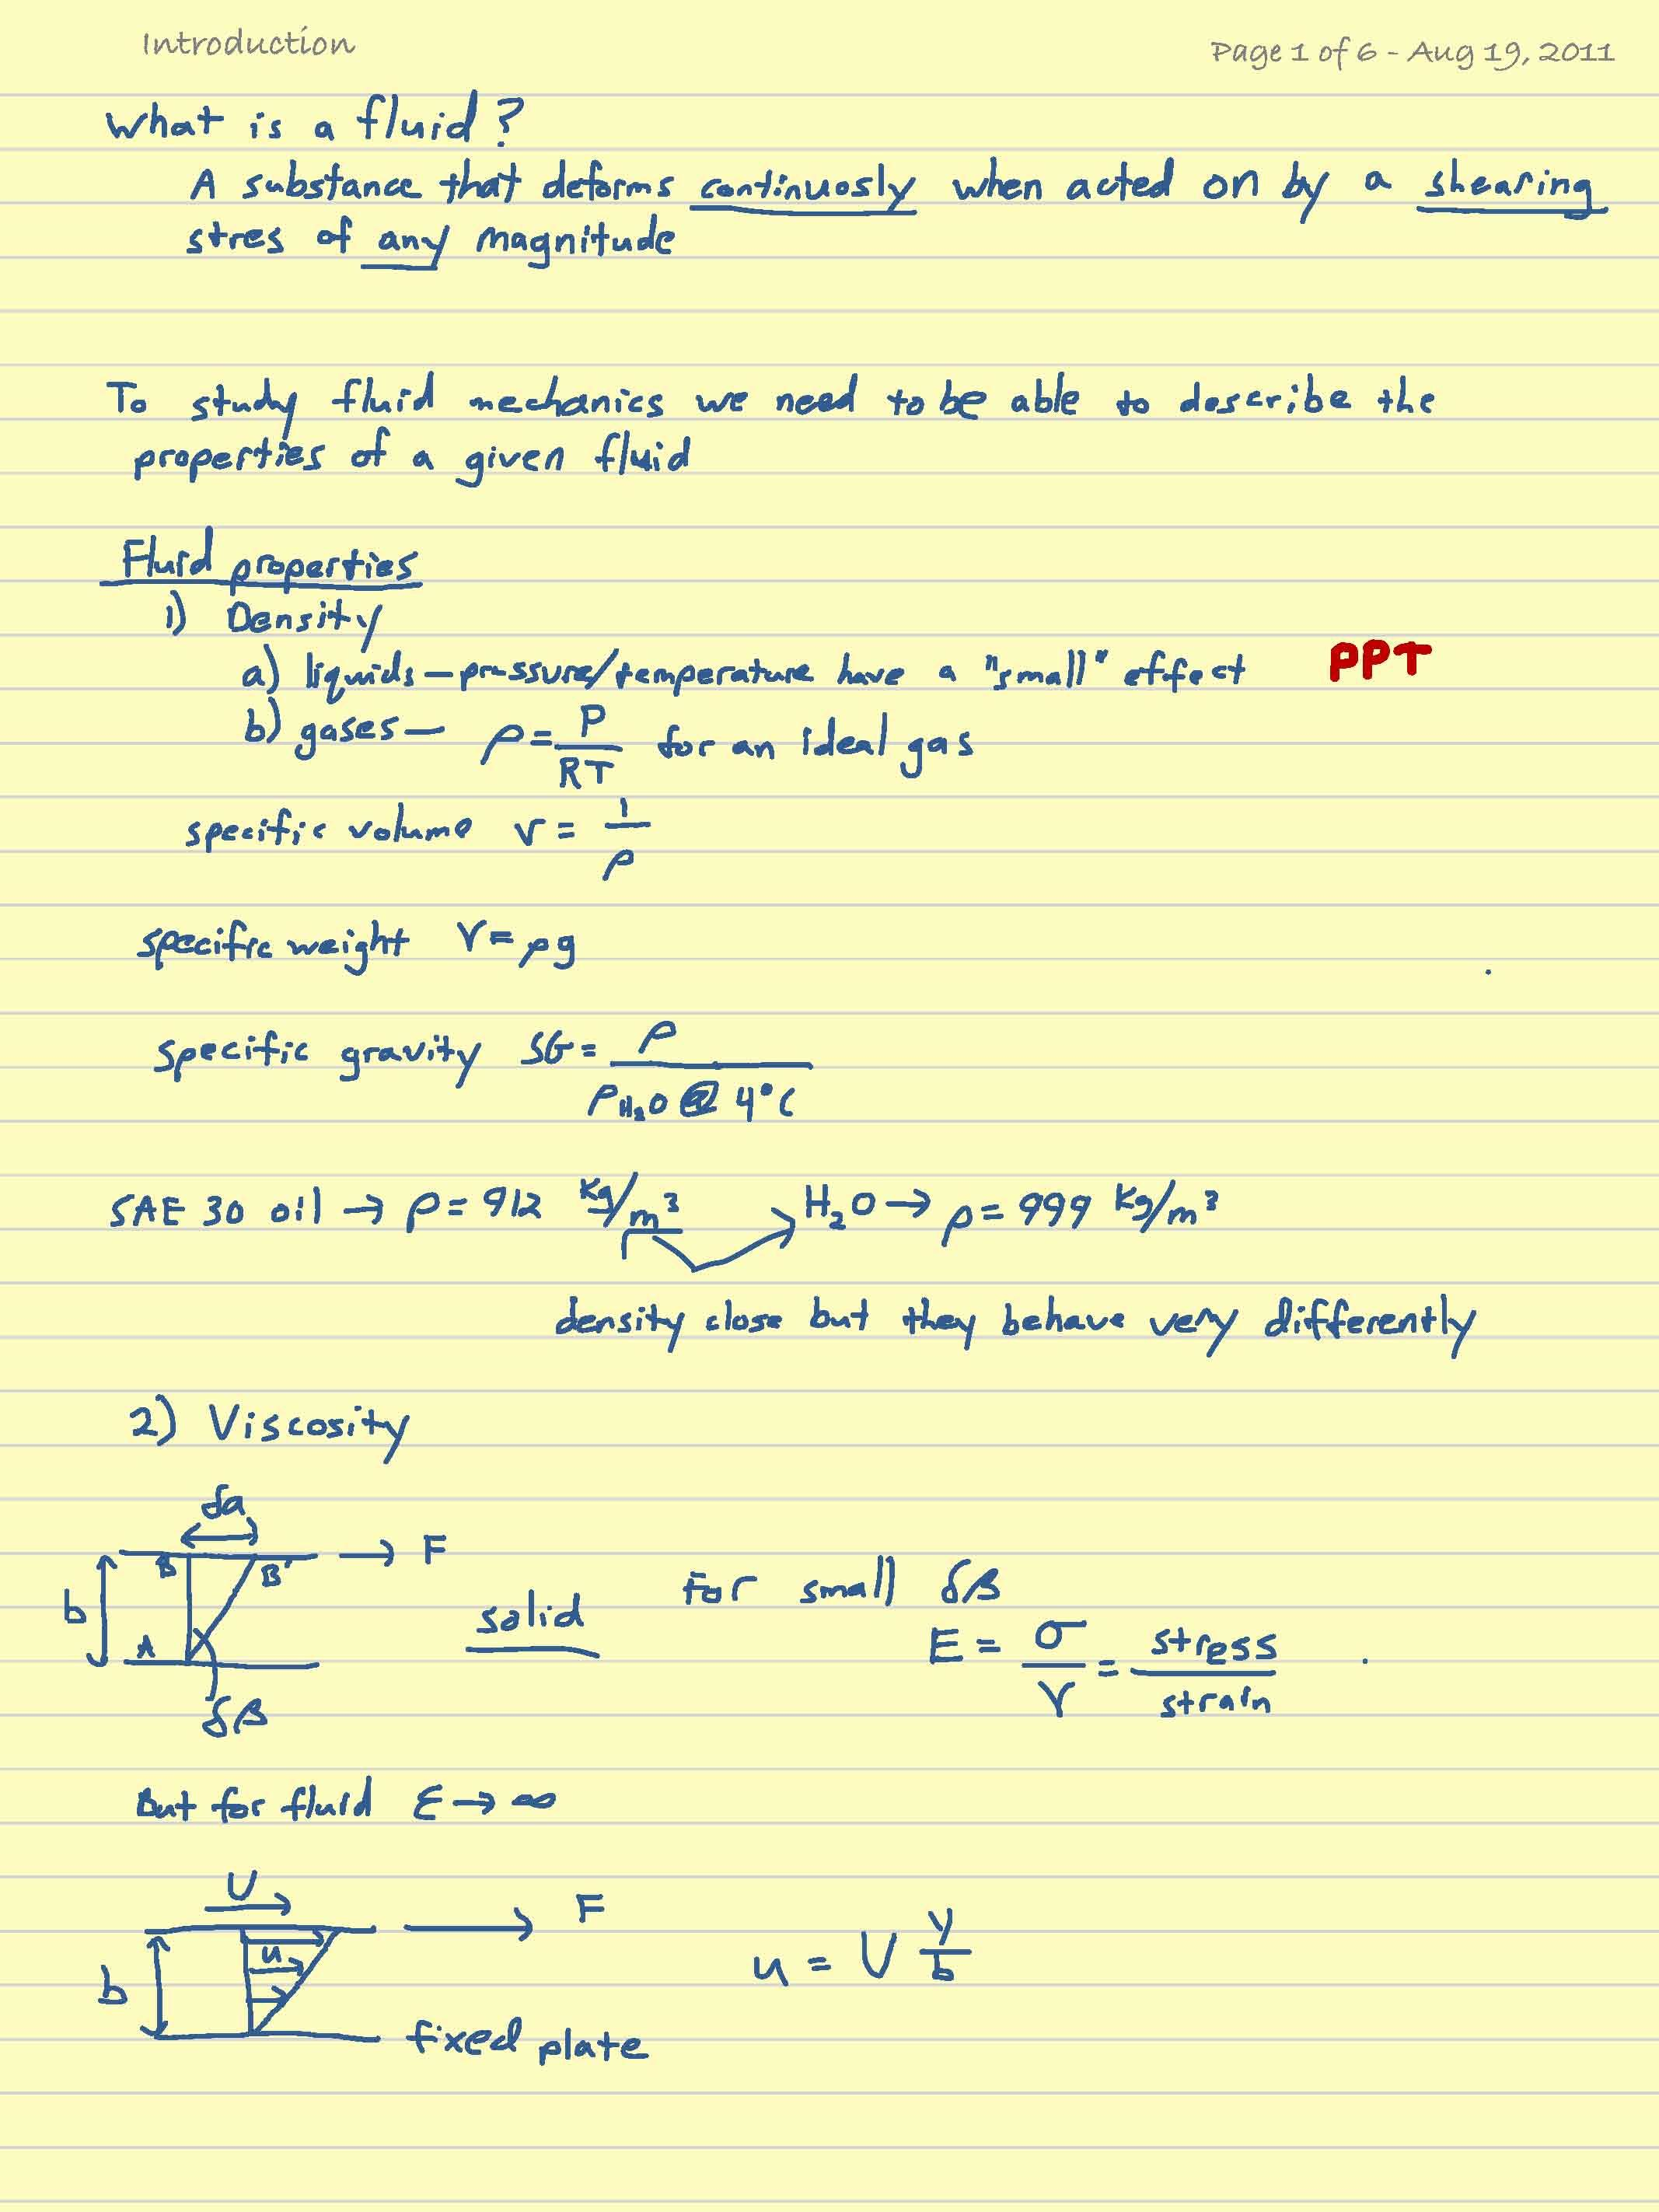 Introduction
Page 1 of 6 - Aug 19, 2011
What is a fluid?
A substance that deforms continuosly when acted on by a shearing
stres of any magnitude
To study fluid mechanics we need to be able to describe the
properties of a given fluid
Fluid properties
1) Density
a) liquids - pressure/temperature have a "small" effect PPT
b) gases - ρ = P/RT for an ideal gas
specific volume v = 1/ρ
specific weight γ = ρg
specific gravity SG = ρ / ρH₂O @ 4°C
SAE 30 oil → ρ = 912 kg/m³ H₂O → ρ = 999 kg/m³
density close but they behave very differently
2) Viscosity
δa
B B' → F
b
A
δβ
solid
For small δβ
E = σ/γ = stress/strain
But for fluid ε → ∞
U
F
u
b
fixed plate
u = U y/b